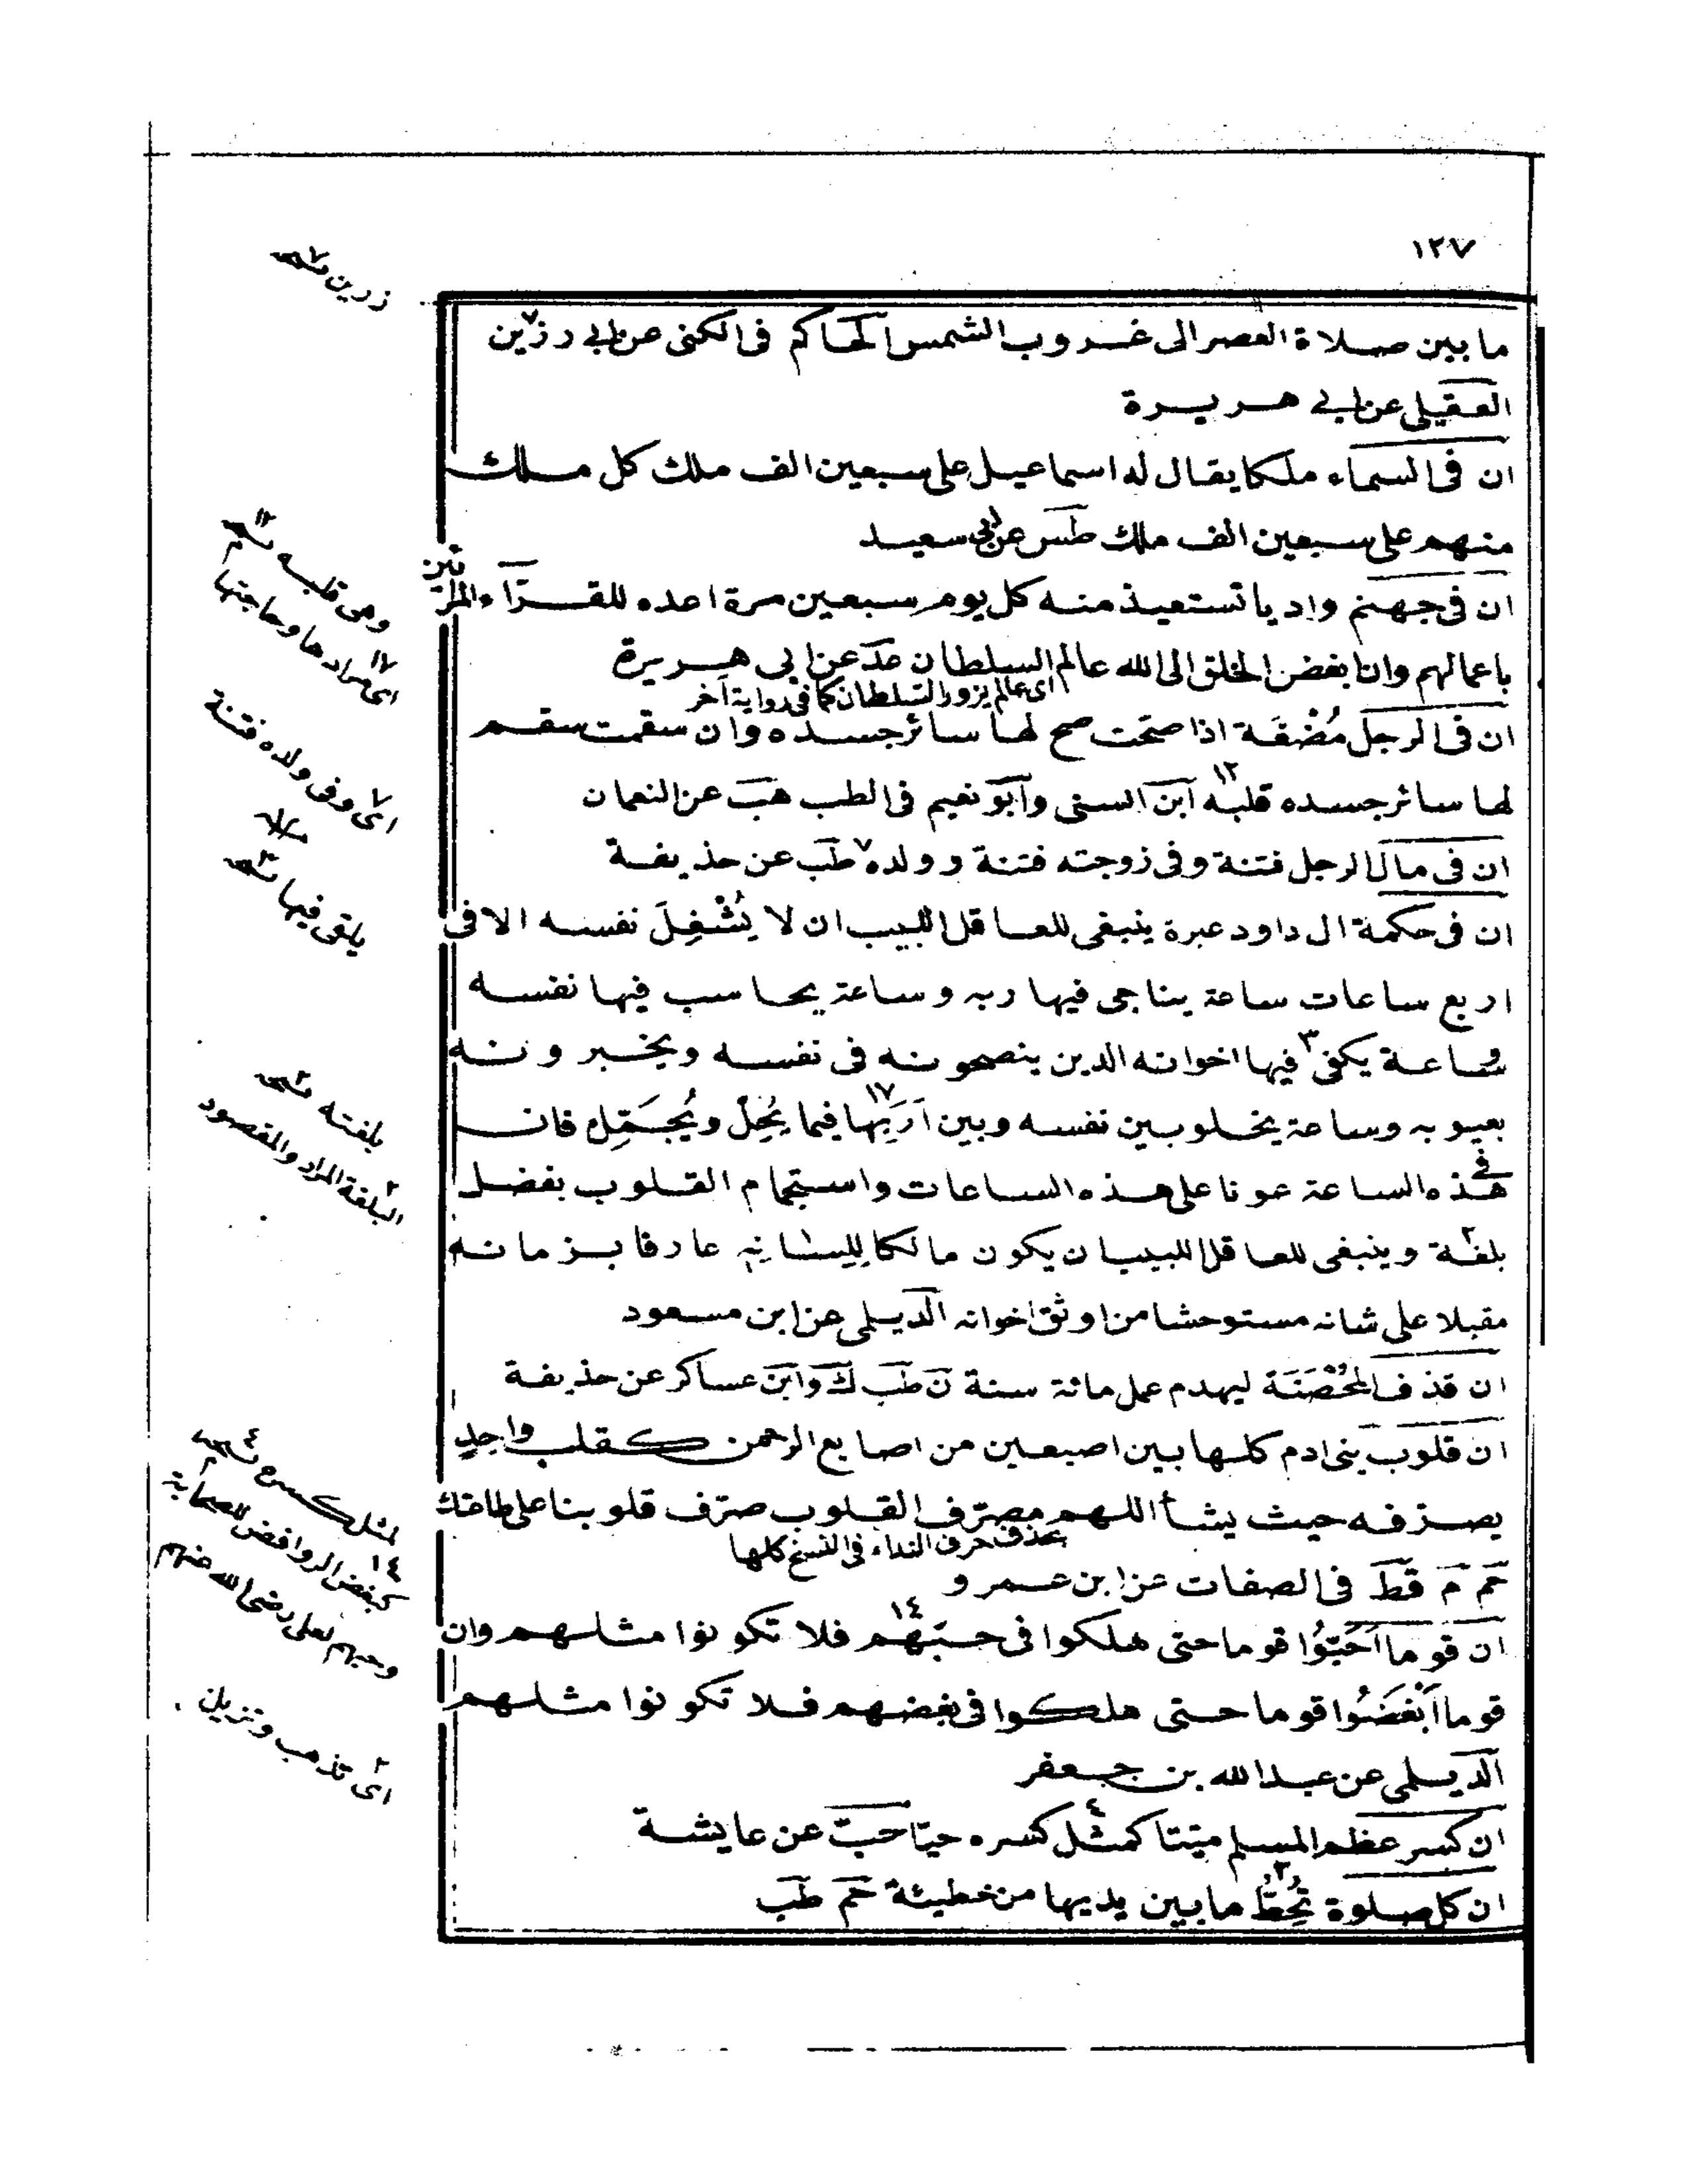 ١٢٧
ما بين صلاة العصر الى غروب الشمس الحاكم فى الكنى عن ابى رزين
العقيلى عن ابى هريرة
ان فى السماء ملكا يقال له اسماعيل على سبعين الف ملك كل ملك
منهم على سبعين الف ملك طس عن ابى سعيد
ان فى جهنم واديا تستعيذ منه كل يوم سبعين مرة اعده للقرّاء المرائين
باعمالهم وان ابغض الخلق الى الله عالم السلطان عد عن ابى هريرة
اى عالم يزور السلطان كما فى رواية آخر
ان فى الرجل مُضْغَة اذا صحت صح لها سائر جسده وان سقمت سقم
لها سائر جسده قلبه ١٢ ابن السنى وأبو نعيم فى الطب هب عن النعمان
ان فى مال الرجل فتنة وفى زوجته فتنة وولده ٧ طب عن حذيفة
ان فى حكمة ال داود عبرة ينبغى للعاقل اللبيب ان لا يُشْغِلَ نفسه الا فى
اربع ساعات ساعة يناجى فيها ربه وساعة يحاسب فيها نفسه
وساعة يكفى ٣ فيها اخوانه الدين ينصحونه فى نفسه ويخبرونه
بعيوبه وساعة يخلو بين نفسه وبين اَرَبِها ١٧ فيما يَحِلّ ويُجَمّل فان
فى هذه الساعة عونا على هذه الساعات واستجمام القلوب بفضل
بلغة ٢ وينبغى للعاقل اللبيب ان يكون مالكا للسانه عارفا بزمانه
مقبلا على شانه مستوحشا من اوثق اخوانه الديلمى عن ابن مسعود
ان قذف المُحْصَنَة ليهدم عمل مائة سنة ن طب ك وابن عساكر عن حذيفة
ان قلوب بنى ادم كلها بين اصبعين من اصابع الرحمن كقلب واحدٍ
يصرفه حيث يشأ اللهم مصرّف القلوب صرّف قلوبنا على طاعتك
بحذف حرف النداء فى النسخ كلها
حم م قط فى الصفات عن ابن عمرو
ان قوما اَحَبّوُا قوما حتى هلكوا فى حبّهم ١٤ فلا تكونوا مثلهم وان
قوما اَبْغَضُوا قوما حتى هلكوا فى بغضهم فلا تكونوا مثلهم
الديلمى عن عبد الله بن جعفر
ان كسر عظم المسلم ميّتا كمثل ٤ كسره حيّا حب عن عايشة
ان كل صلوة تَحُطُّ ٢ ما بين يديها من خطيئة حم طب
زرين
وهى قلبه
١٧ اى مرادها وحاجتها
٧ اى وفى ولده فتنة
يلقى فيها
بلغته
٢ البلغة المراد والمقصود
لمثل كسره
١٤ كبغض الروافض للصحابة
وحبهم لعلى رضى الله عنهم
٢ اى تذهب وتزيل